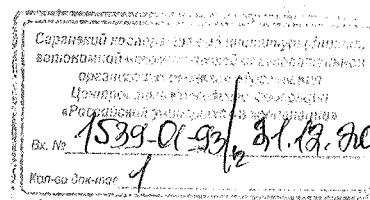 Саранский кооперативный институт (филиал)
автономной некоммерческой образовательной
организации высшего образования
Центросоюза Российской Федерации
«Российский университет кооперации»
Вх. № 1539-01-93/2 31.12.20
Кол-во док-тов 1